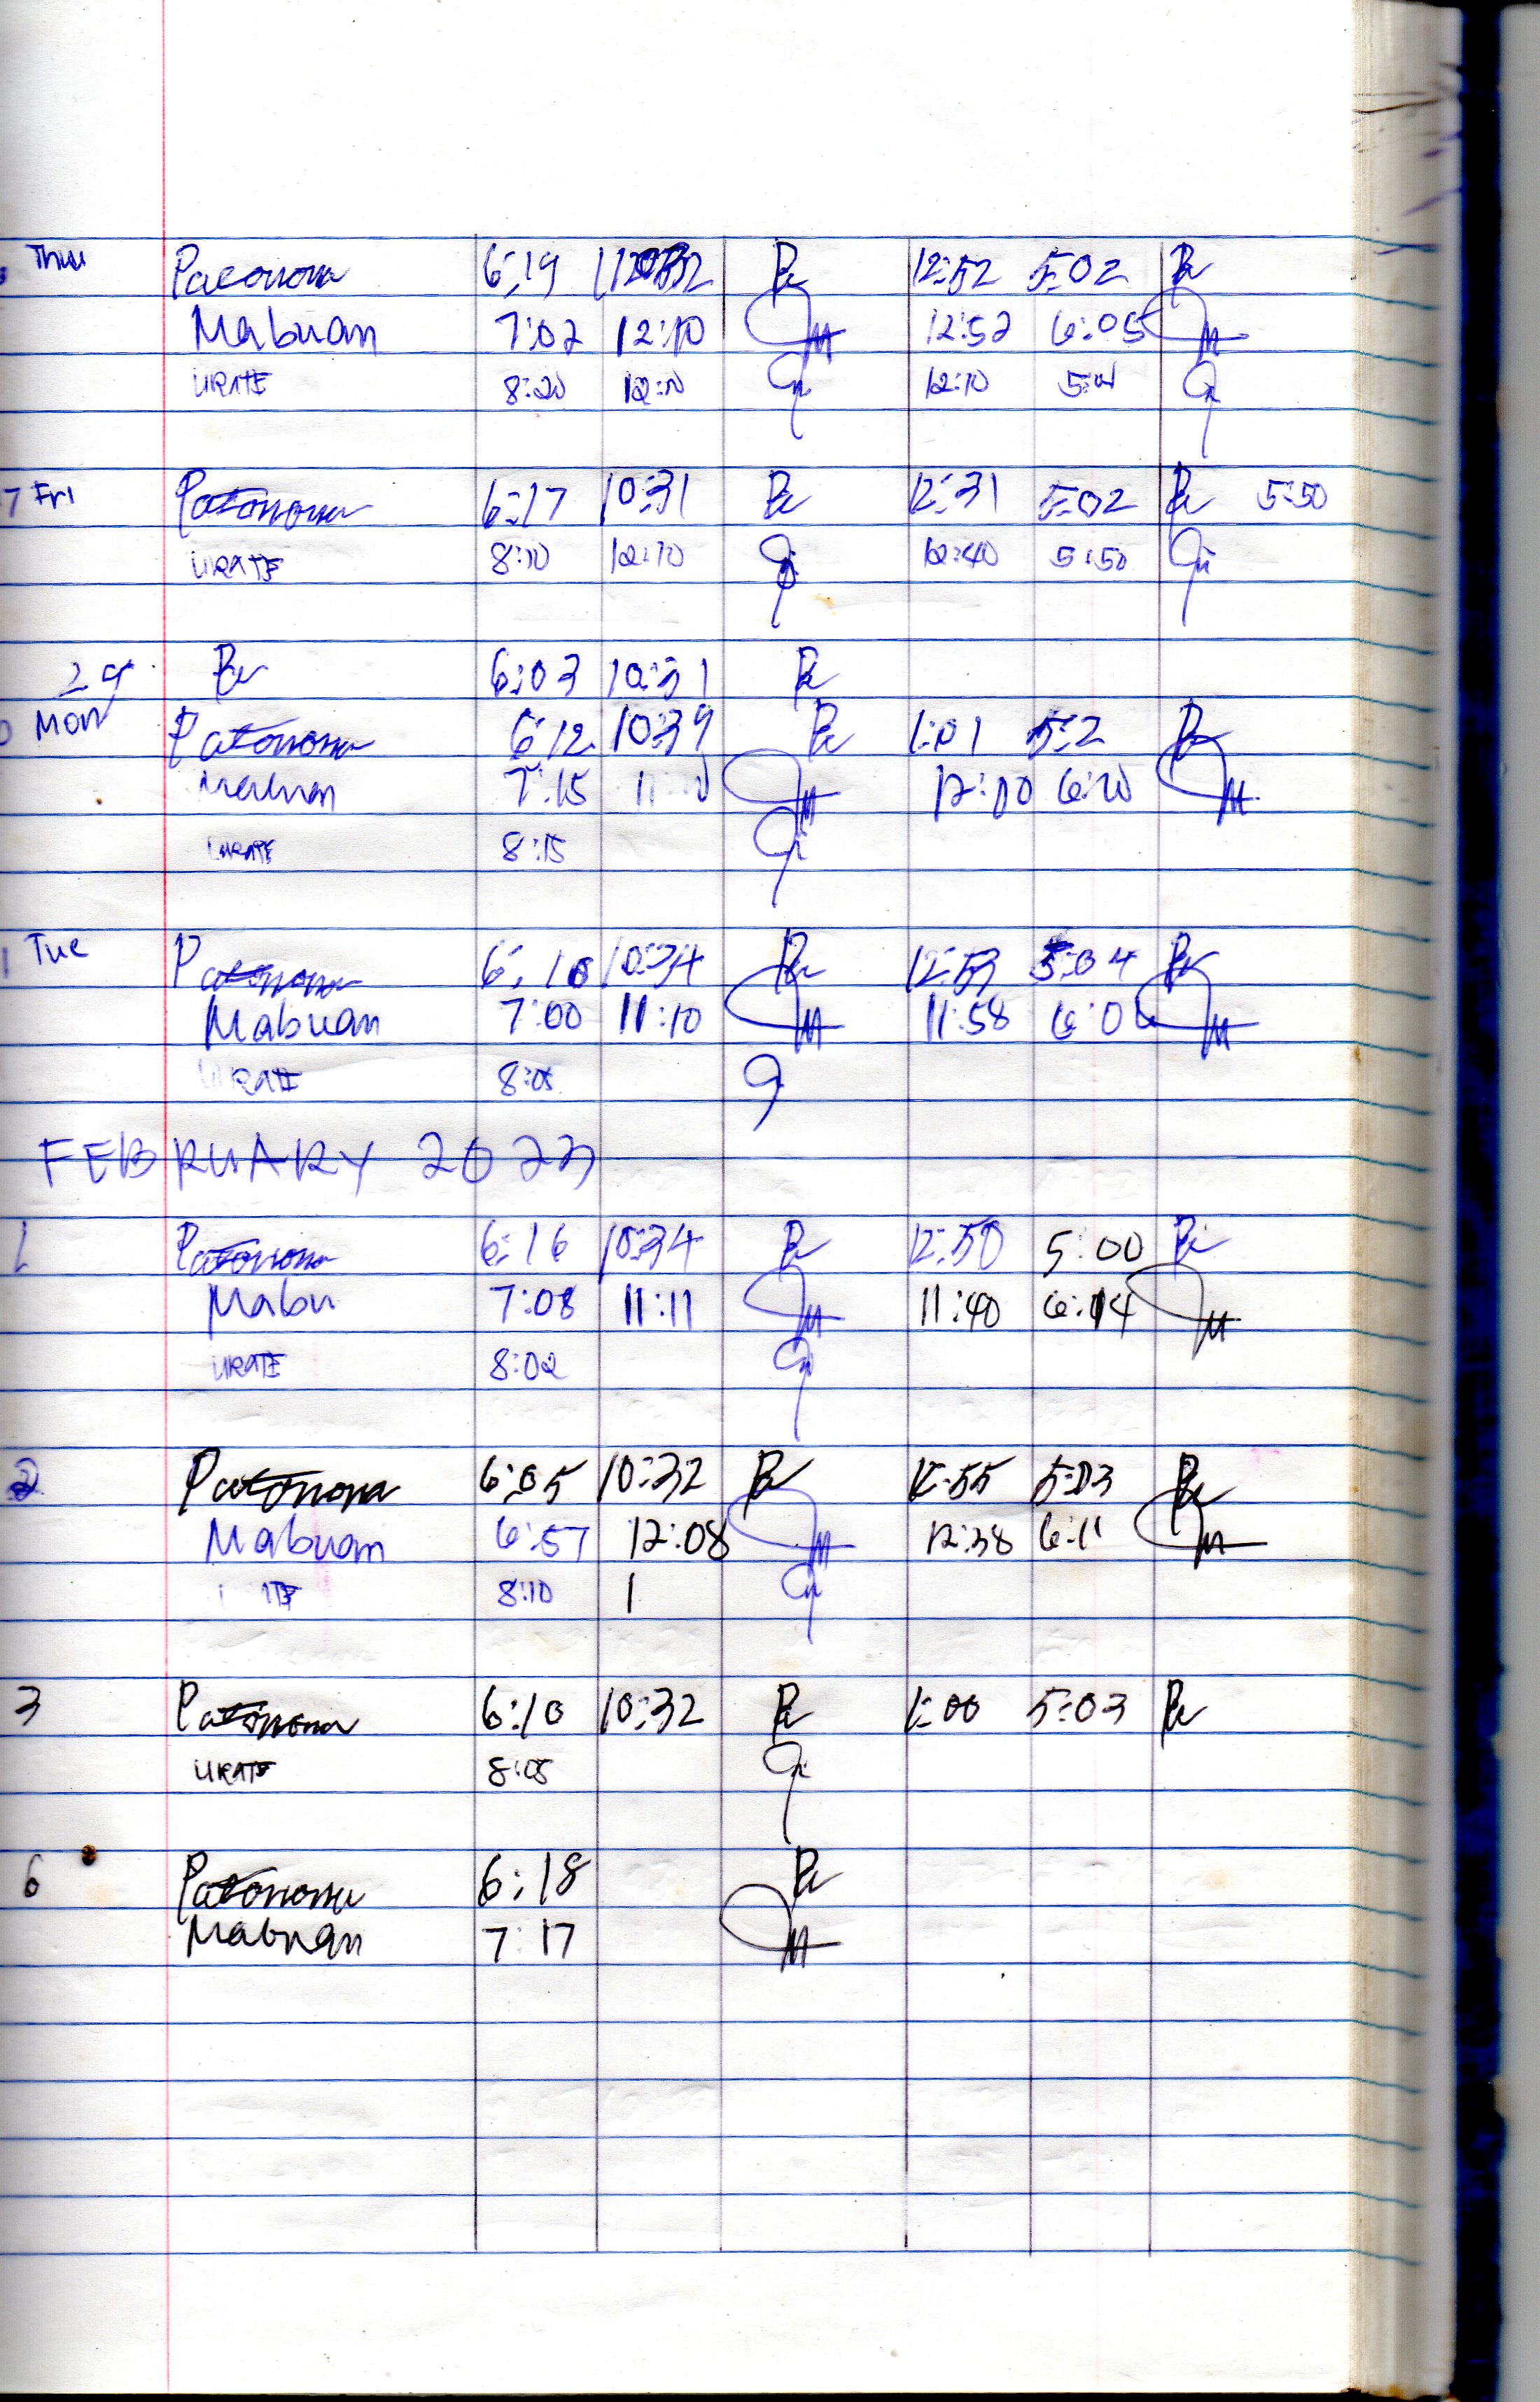 Thu Patonona 6:19 12:52 5:02
Mabuan 7:02 12:10 12:52 6:05
URATE 8:20 12:10 12:10 5:01
7 Fri Patonona 6:17 10:31 12:31 5:02 5:50
URATE 8:10 12:10 12:40 5:50
29 6:03 10:31
Mon Patonona 6:12 10:39 1:01 5:2
Mabuan 7:15 12:00 6:10
URATE 8:15
1 Tue Patonona 6:10 10:34 12:53 5:04
Mabuan 7:00 11:10 11:58 6:06
URATE 8:05
FEBRUARY 2023
1 Patonona 6:16 10:34 12:50 5:00
Mabu 7:08 11:11 11:40 6:14
URATE 8:02
2 Patonona 6:05 10:32 12:55 5:03
Mabuan 6:57 12:08 12:38 6:11
8:10 1
3 Patonona 6:10 10:32 1:00 5:03
URATE 8:05
6 Patonona 6:18
Mabuan 7:17